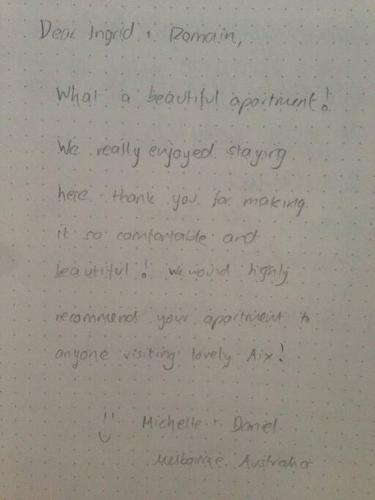 Dear Ingrid + Romain,
What a beautiful apartment!
We really enjoyed staying
here. thank you for making
it so comfortable and
beautiful! We would highly
recommend your apartment to
anyone visiting lovely Aix!
:) Michelle + Daniel
Melbourne, Australia